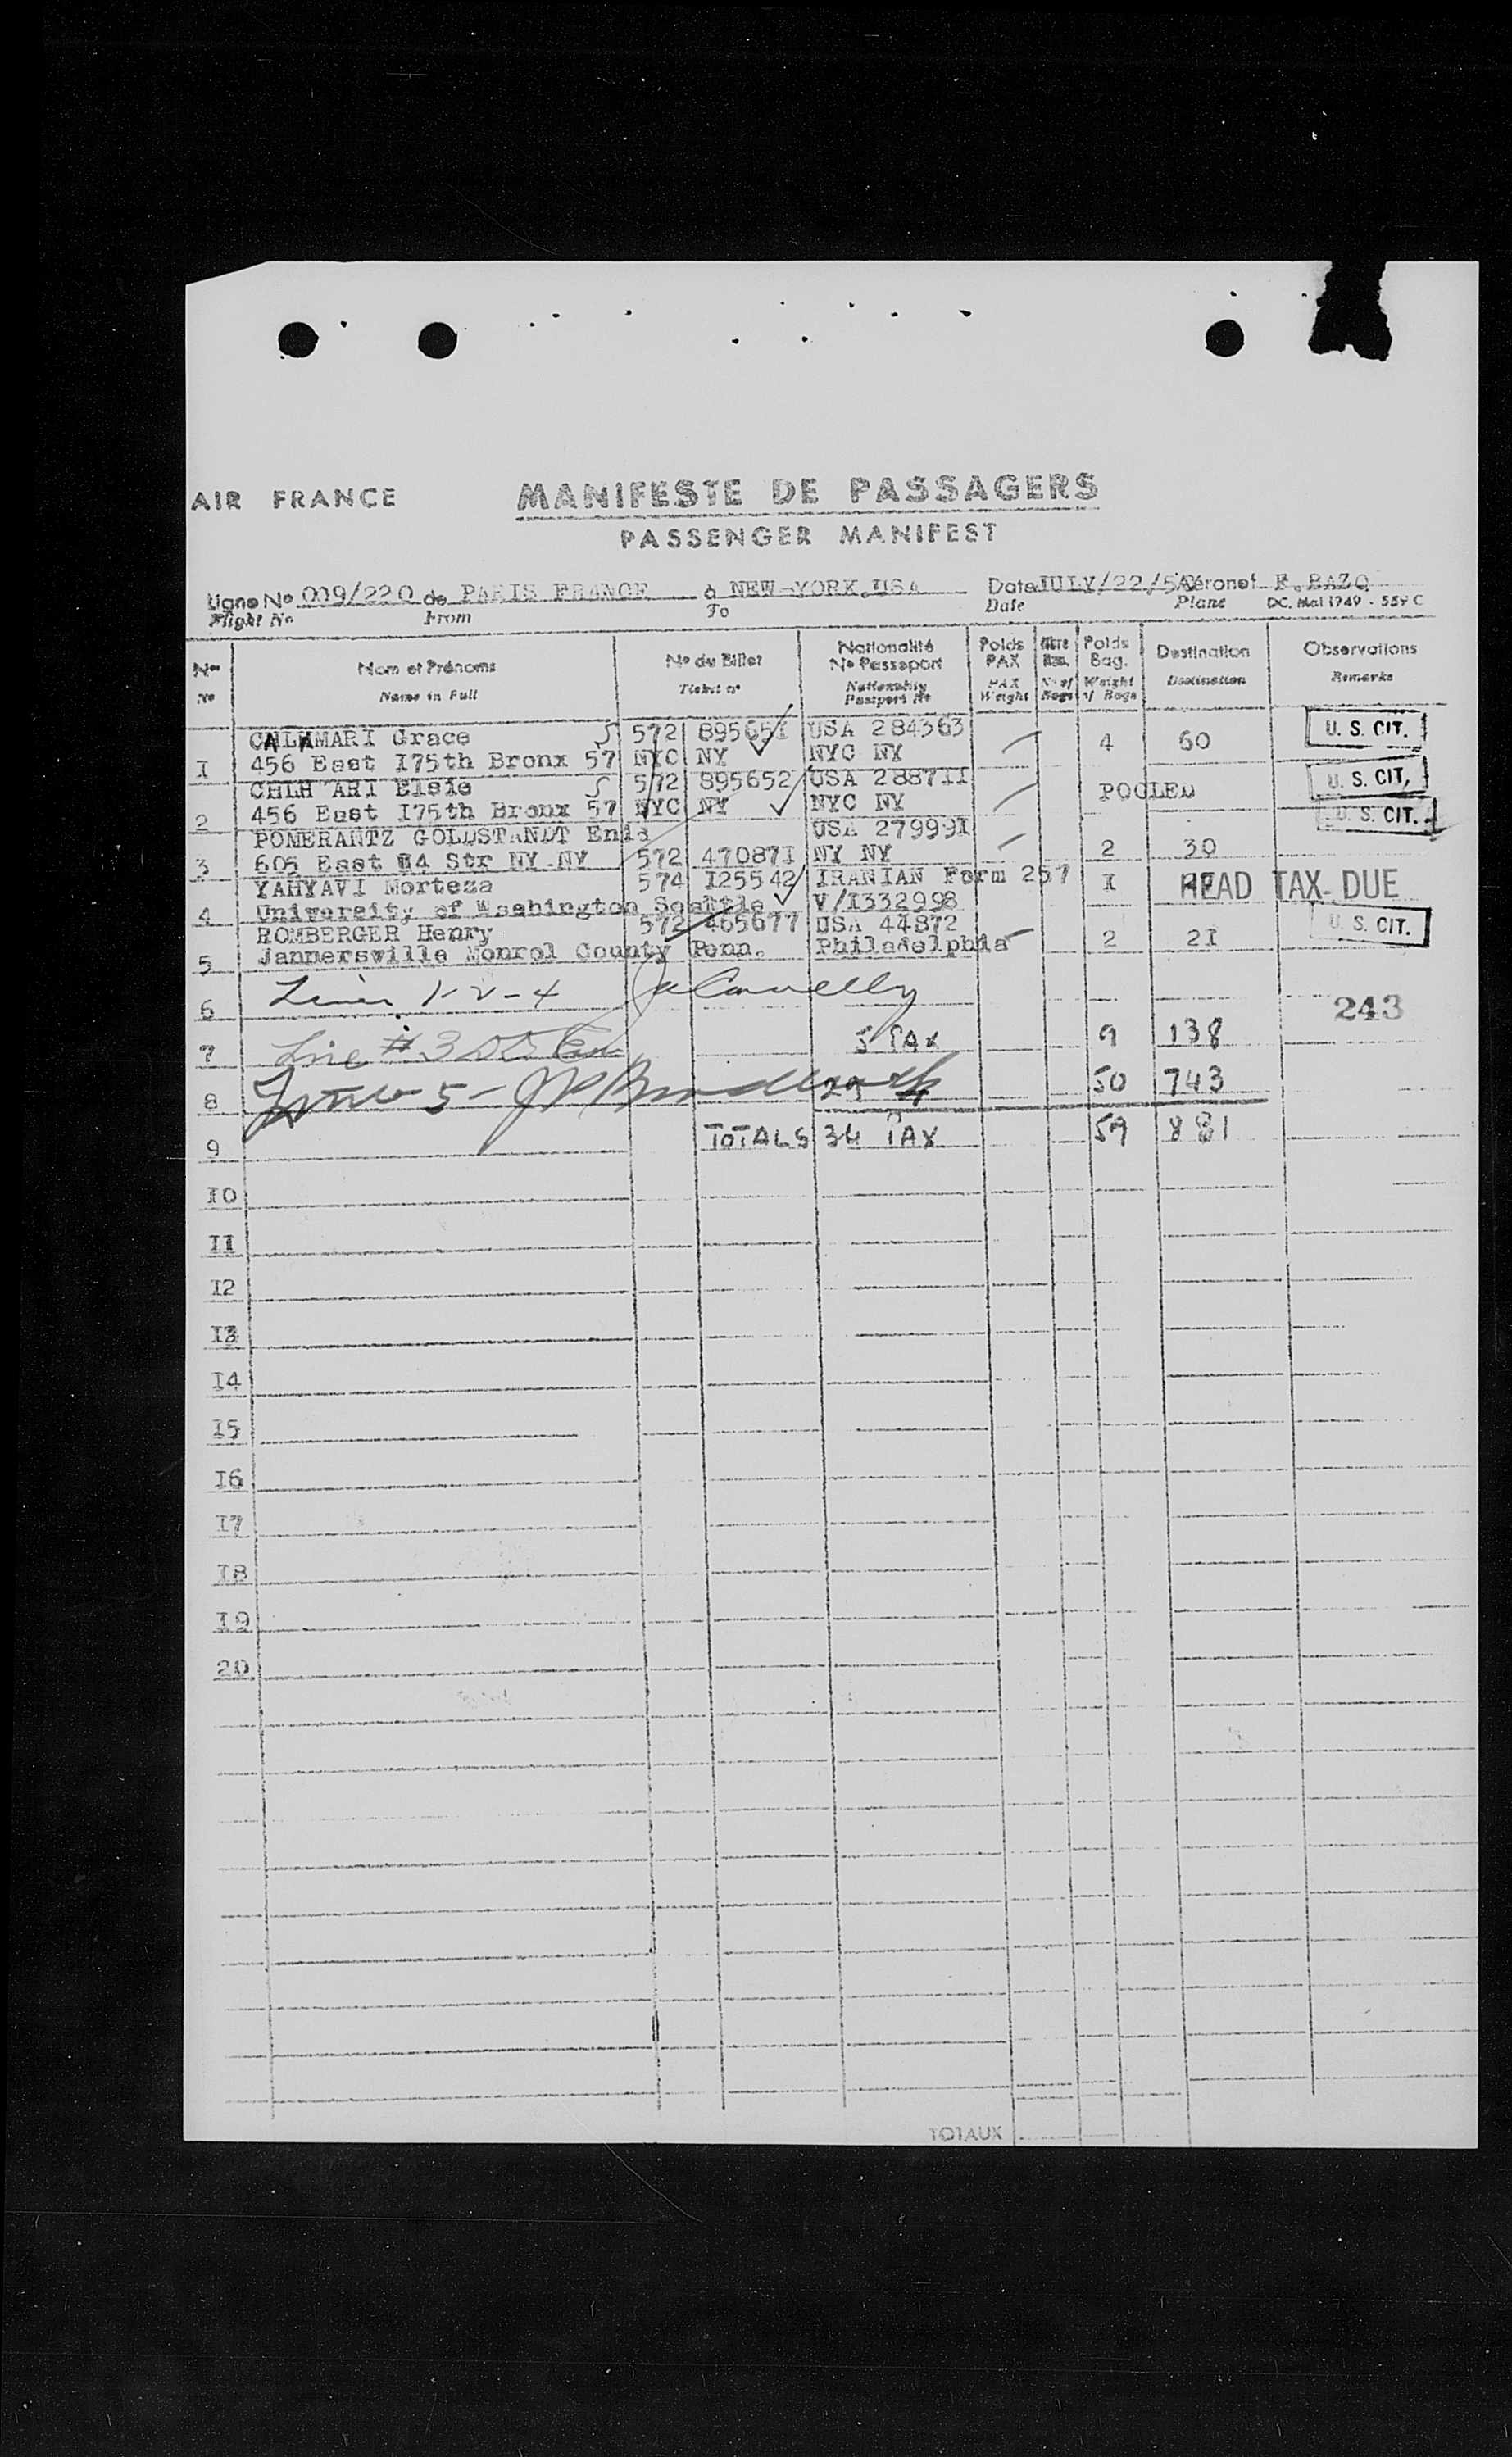 AIR FRANCE
MANIFESTE DE PASSAGERS
PASSENGER MANIFEST
Ligne No 009/220 de PARIS FRANCE à NEW-YORK.USA Date JULY/22/50 Aéronef F.BAZQ
Flight No From To Date Plane DC. Mai 1949 - 559 C
Nos Nom et Prénoms No du Billet Nationalité No Passeport Poids PAX Poids Bag. Destination Observations
No Name in Full Ticket no Nationality Passport No PAX Weight No of Bags Weight of Bags Destination Remarks
CALAMARI Grace 572 895651 USA 284363 4 60 U. S. CIT.
1 456 East I75th Bronx 57 NYC NY NYC NY
572 895652 USA 288711 POOLED U. S. CIT.
2 456 East I75th Bronx 57 NYC NY NYC NY
POMERANTZ GOLDSTANDT Enid USA 27999I U. S. CIT.
3 605 East 14 Str NY NY 572 47087I NY NY 2 30
YAHYAVI Morteza 574 I25542 IRANIAN Form 257 I HEAD TAX DUE
4 University of Washington Seattle V/I332998
ROMBERGER Henry 572 465677 USA 44872 2 2I U. S. CIT.
5 Jannersville Monrol County Penn. Philadelphia
6 Lines 1-2-4 243
7 Line #3 5 PAX 9 138
8 5 - 29 50 743
9 TOTALS 34 PAX 59 881
I0
II
I2
I3
I4
I5
I6
I7
I8
I9
20
TOTAUX